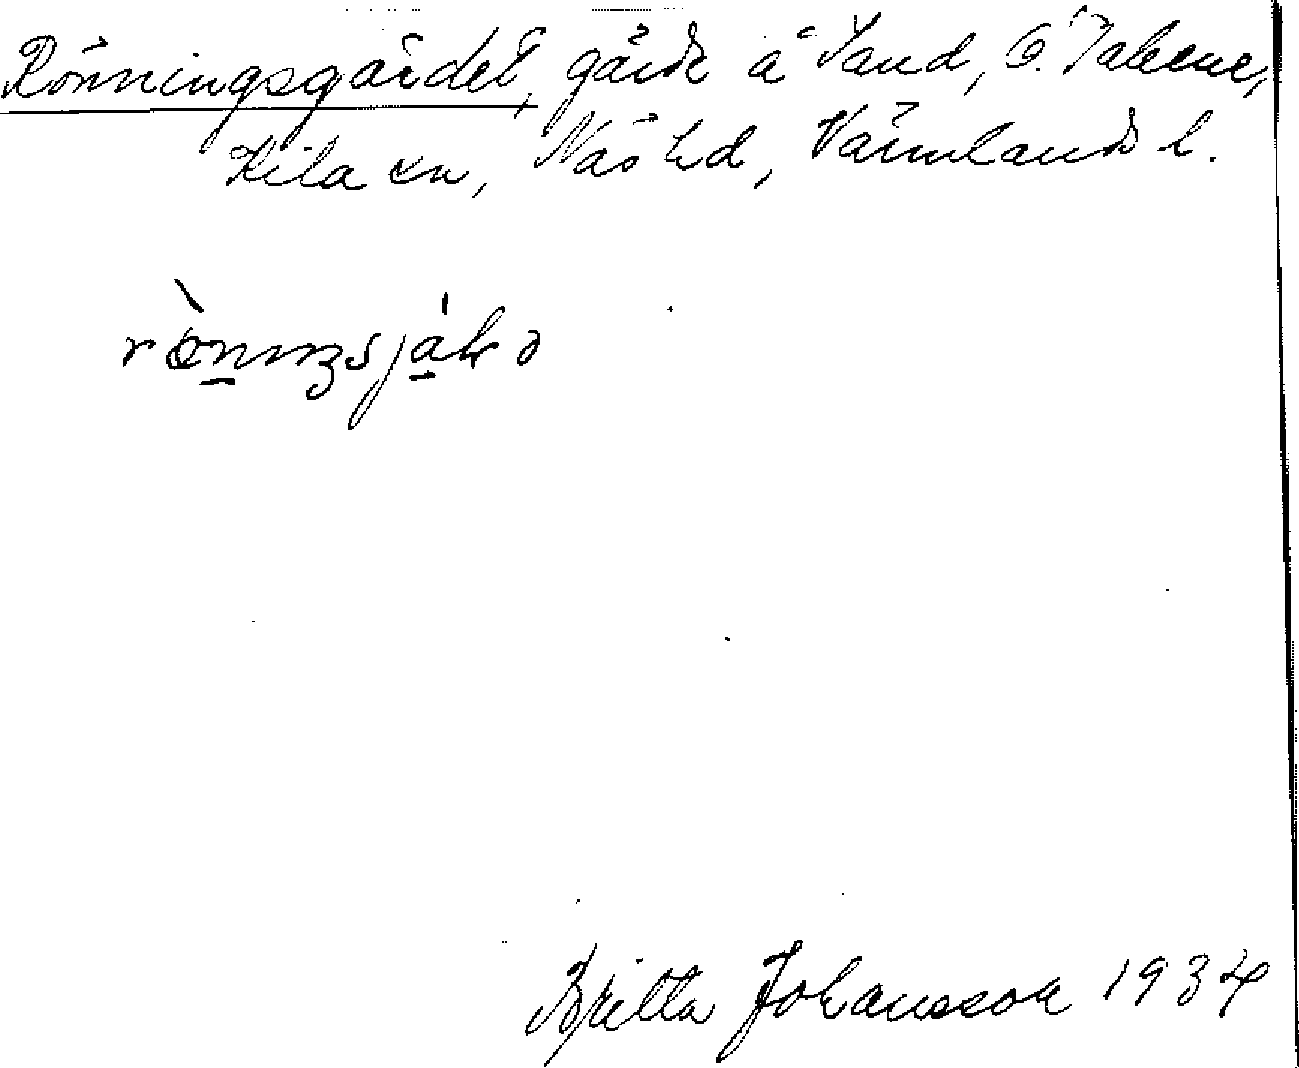 Rönningsgärdet, gärde å Sand, Ö. Takene,
Kila sn, Näs hd, Värmlands l.
Britta Johansson 1934